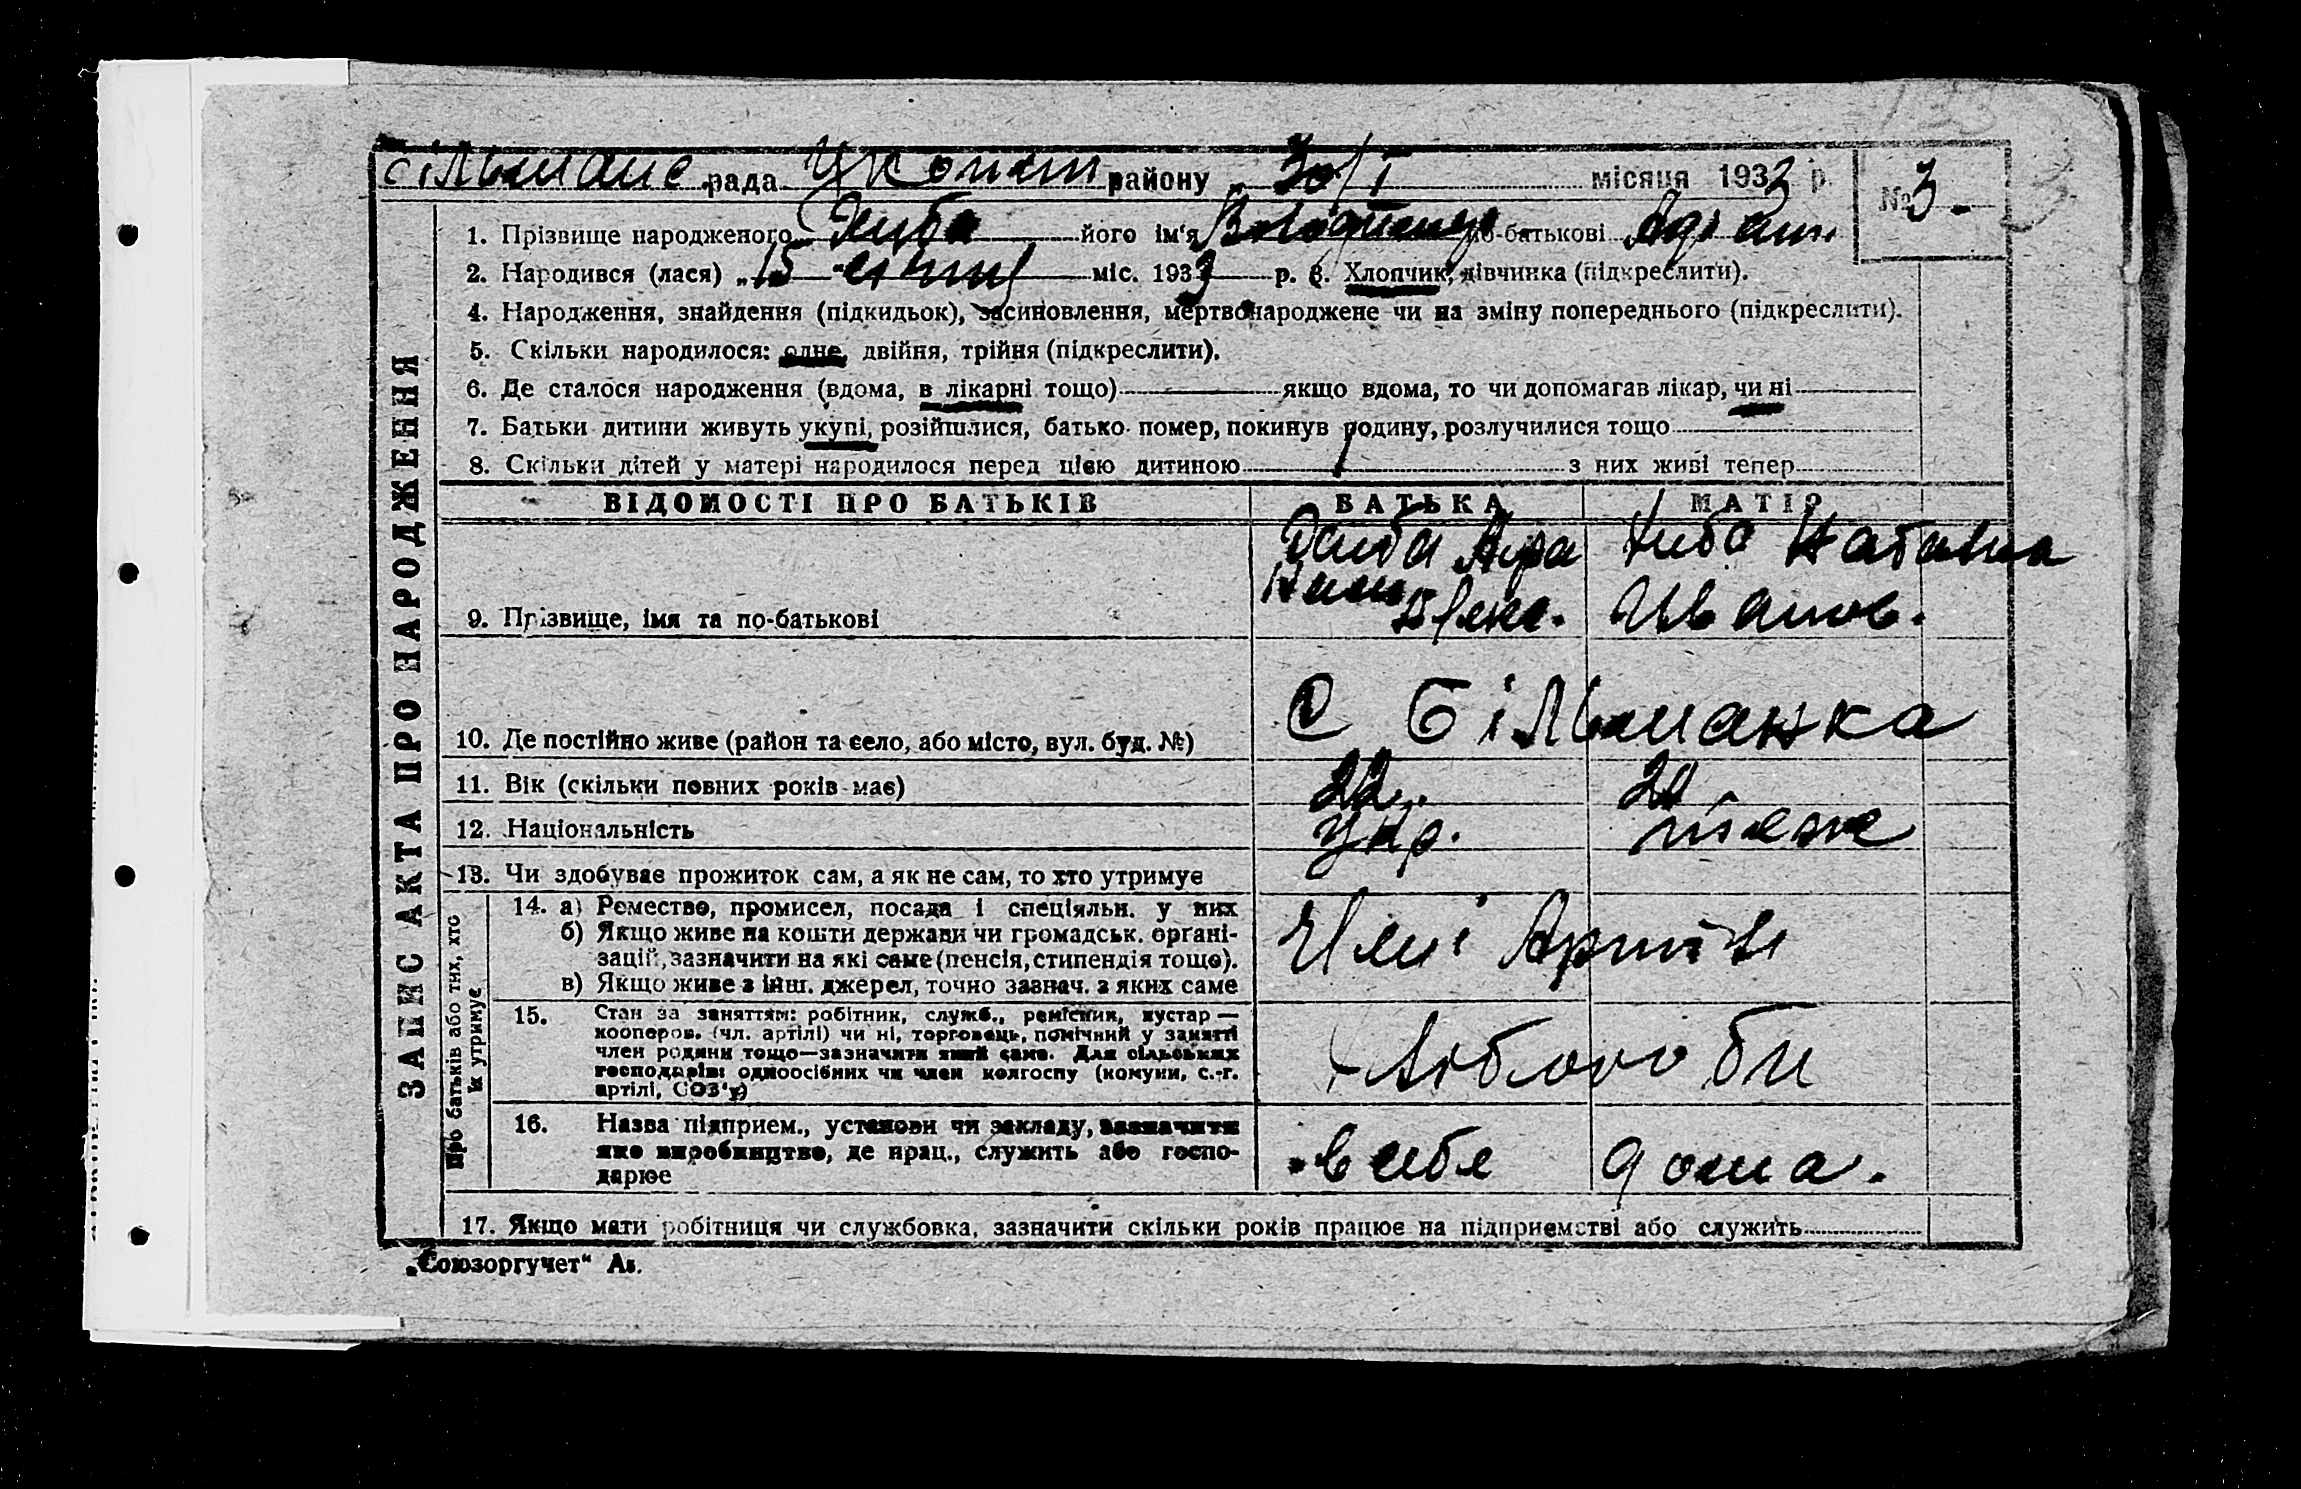 рада району „30/I місяця 1933 р. № 3
1. Прізвище народженого його ім'я по-батькові
2. Народився (лася) „15 січня міс. 1933 р. 3. Хлопчик, дівчинка (підкреслити).
4. Народження, знайдення (підкидьок), засиновлення, мертвонароджене чи на зміну попереднього (підкреслити).
5. Скільки народилося: одне, двійня, трійня (підкреслити).
6. Де сталося народження (вдома, в лікарні тощо) якщо вдома, то чи допомагав лікар, чи ні
7. Батьки дитини живуть укупі, розійшлися, батько помер, покинув родину, розлучилися тощо
8. Скільки дітей у матері народилося перед цією дитиною 1 з них живі тепер
ЗАПИС АКТА ПРО НАРОДЖЕННЯ
ВІДОМОСТІ ПРО БАТЬКІВ БАТЬКА МАТІР
9. Прізвище, імя та по-батькові
Иванов.
10. Де постійно живе (район та село, або місто, вул. буд. №) с Більманка
11. Вік (скільки повних років має) 22
12. Національність Укр.
13. Чи здобуває прожиток сам, а як не сам, то хто утримує
Про батьків або тих, хто
їх утримує
14. а) Ремество, промисел, посада і спеціяльн. у них
б) Якщо живе на кошти держави чи громадськ. органі-
зацій, зазначити на які саме (пенсія, стипендія тощо).
в) Якщо живе з інш. джерел, точно зазнач. з яких саме
15. Стан за заняттям: робітник, служб., ремісник, кустар—
кооперов. (чл. артілі) чи ні, торговець, помічний у занятті
член родини тощо—зазначити який саме. Для сільських
господарів: одноосібних чи член колгоспу (комуни, с.-г.
артілі, СОЗ'у)
16. Назва підприєм., установи чи закладу, зазначити
яке виробництво, де прац., служить або госпо-
дарює
в себе дома.
17. Якщо мати робітниця чи службовка, зазначити скільки років працює на підприємстві або служить
„Союзоргучет“ Аз.